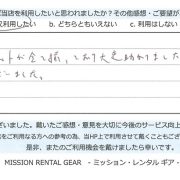 ご当店を利用したいと思われましたか？その他感想・ご要望が
利用したい　b. どちらともいえない　c. 利用はしない
ットが全て揃っており大変助かりました
いました。
ざいました。戴いたご感想・意見を大切に今後のサービス向上
をご利用なる方への参考の為、当HP上で利用させて戴くこともござ
是非、またのご利用機会を戴けましたら幸いです。
MISSION RENTAL GEAR - ミッション・レンタル ギア -